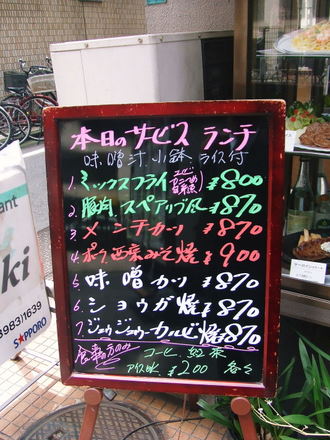 本日のサービス ランチ
味噌汁 小鉢 ライス付
1. ミックスフライ ¥800
2. 豚肉 スペアリブ風 ¥870
3. メンチカツ ¥870
4. ポーク西京みそ焼 ¥900
5. 味噌カツ ¥870
6. ショウガ焼 ¥870
7. ジュウジュウカルビ焼 870
食事の方のみ コーヒー、紅茶
アイス ¥200 各々
ant
ki
3983)1639
SAPPORO